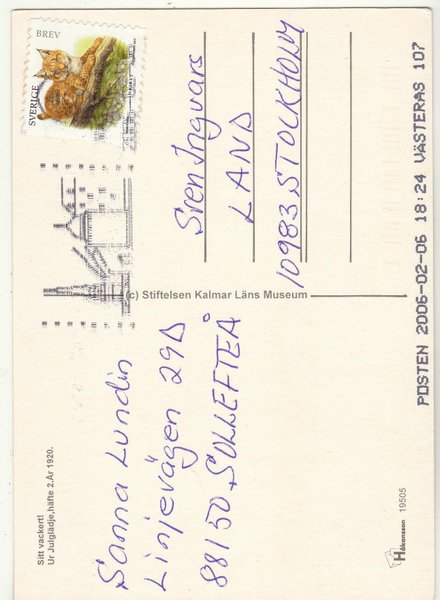 BREV
SVERIGE
Sven Ingvars
LAND
10983 STOCKHOLM
POSTEN 2006-02-06 18:24 VÄSTERÅS 107
(c) Stiftelsen Kalmar Läns Museum
Sanna Lundin
Linjevägen 29D
88150 SOLLEFTEÅ
Sitt vackert!
Ur Julglädje,häfte 2.År 1920.
Håkansson 19505